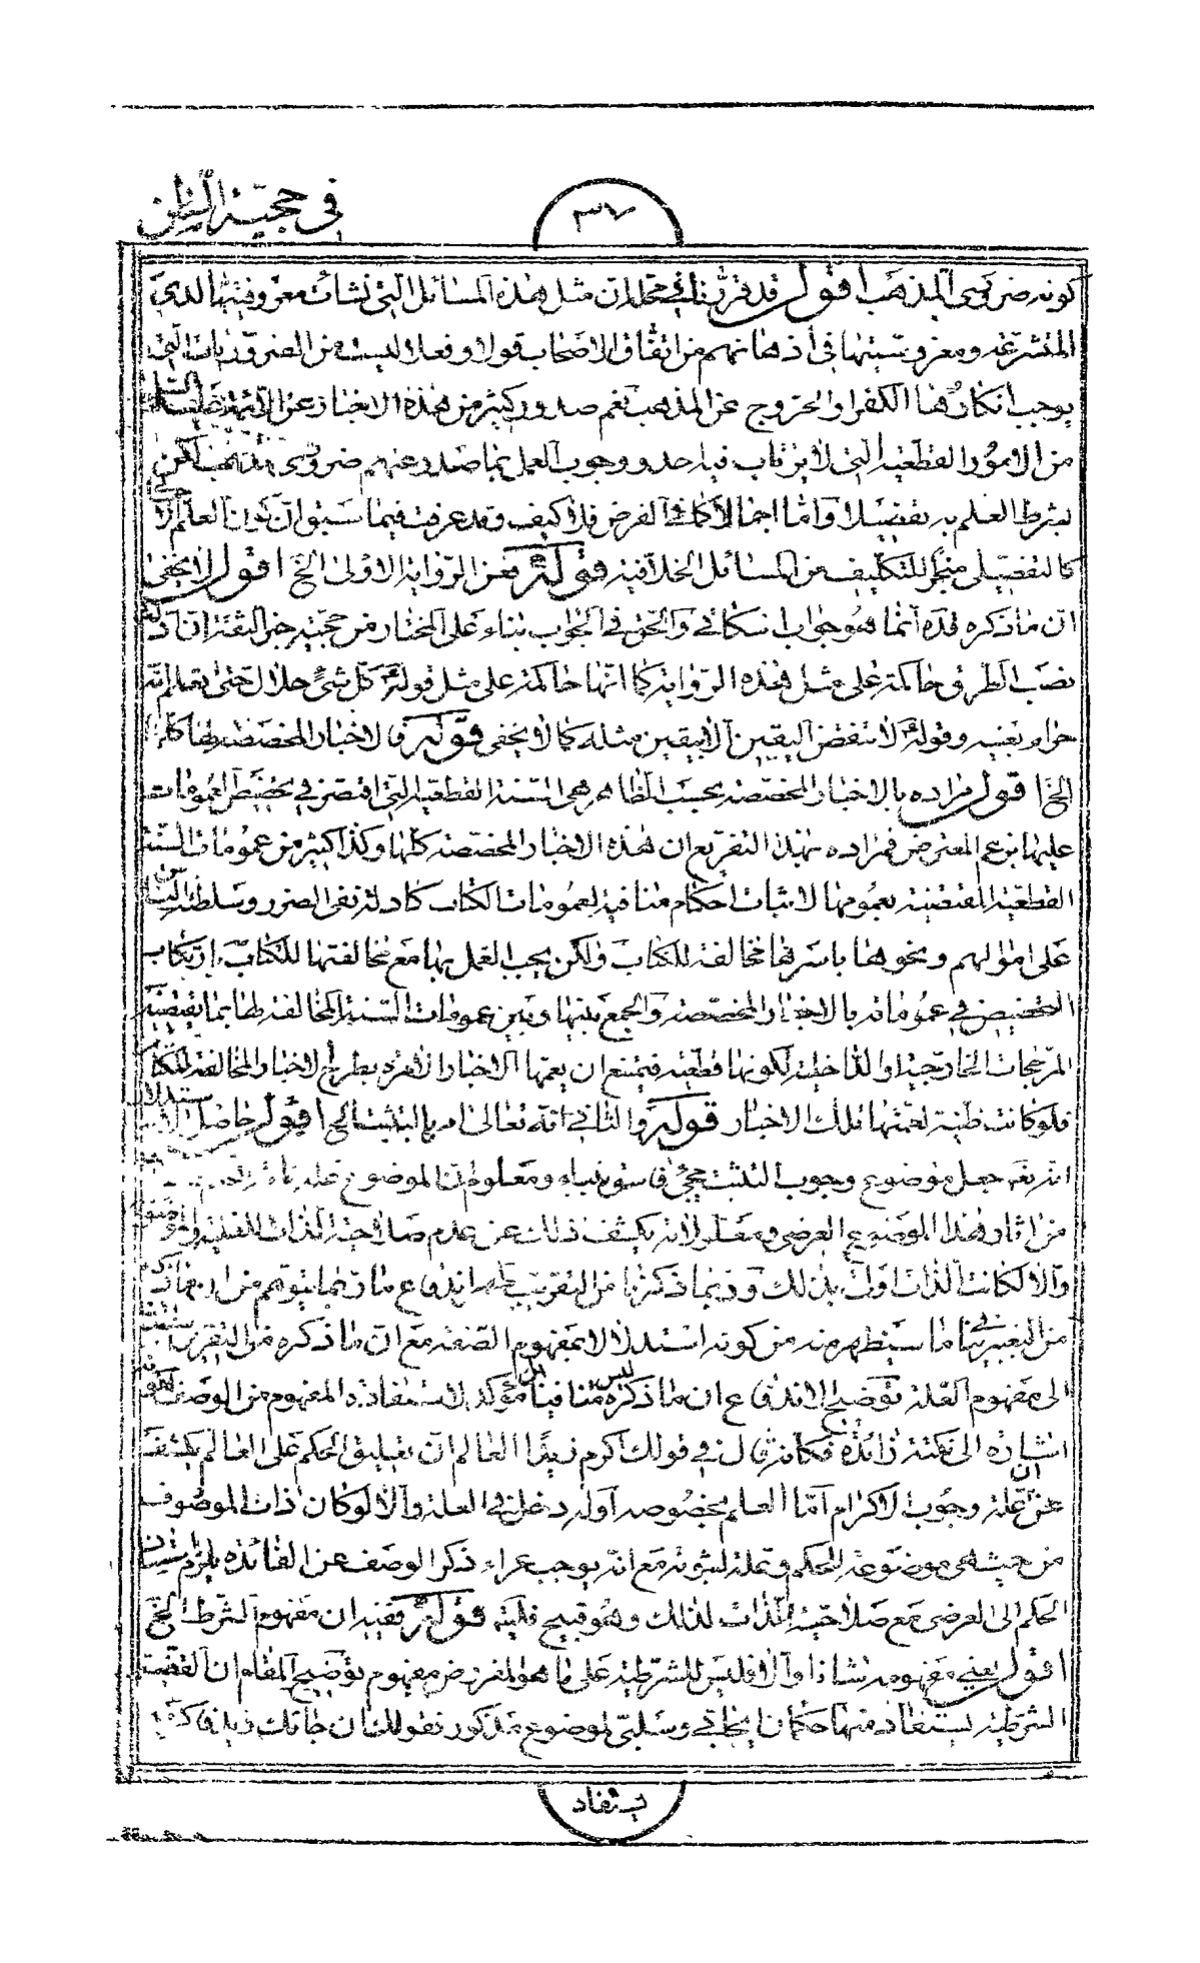 في حجية الظن
٣٧
كونه ضروري المذهب اقول قد قررنا لك في محله ان مثل هذه المسائل التي نشأت معروفيتها لدي
المتشرعة ومغروسيتها في أذهانهم من اتفاق الاصحاب قولا وفعلا ليست من الضروريات التي
يوجب انكارها الكفر او الخروج عن المذهب نعم صدور كثير من هذه الاخبار عن الائمة عليهم السلام
من الامور القطعية التي لا يرتاب فيها احد ووجوب العمل بما صدر عنهم ضروري المذهب لكن
بشرط العلم به تفصيلا واما اجمالا كما في الفرض فلا كيف وقد عرفت فيما سبق ان كون العلم الاجمالي
كالتفصيلي منجزا للتكليف من المسائل الخلافية قوله فعن الرواية الاولى الخ اقول لا يخفى
ان ما ذكره قده انما هو جواب اسكاتي والحق في الجواب بناء على المختار من حجية خبر الثقة ان ادلة
نصب الطرق حاكمة على مثل هذه الرواية كما انها حاكمة على مثل قوله كل شئ حلال حتى تعلم انه
حرام بعينه وقوله لا تنقض اليقين الا بيقين مثله كما لا يخفى قوله والاخبار المخصصة لها كلها
الخ اقول مراده بالاخبار المخصصة بحسب الظاهر هي السنة القطعية التي اقتصر في تخصيص العمومات
عليها بزعم المعترض فمراده بهذا التفريع ان هذه الاخبار المخصصة كلها وكذا كثير من عمومات السنة
القطعية المقتضية بعمومها لاثبات احكام منافية لعمومات الكتاب كادلة نفي الضرر وسلطنة الناس
على اموالهم ونحوها باسرها مخالفة للكتاب ولكن يجب العمل بها مع مخالفتها للكتاب بارتكاب
التخصيص في عموماته بالاخبار المخصصة والجمع بينها وبين عمومات السنة المخالفة لها بما يقتضيه
المرجحات الخارجية او الداخلية لكونها قطعية فيمتنع ان يعمها الاخبار الامرة بطرح الاخبار المخالفة للكتاب
فلو كانت ظنية لعمتها تلك الاخبار قوله والثاني انه تعالى امر بالتثبت الخ اقول حاصل الاستدلال
انه تعالى جعل موضوع وجوب التثبت مجئ فاسق بنبأ ومعلوم ان الموضوع
من اثار هذا الموضوع العرضي ومعلولاته يكشف ذلك عن عدم صلاحية الذات للعلية
والا لكانت الذات اولى بذلك وفيما ذكرنا من التقريب ظهر اندفاع ما ربما يتوهم من ان ما ذكره
من التعبير ينافي ما سيظهر منه من كونه استدلالا بمفهوم الصفة مع ان ما ذكره من التقريب
الى مفهوم العلة توضيح الاندفاع ان ما ذكره ليس منافيا بل مؤكد لاستفادة المفهوم من الوصف
اشارة الى نكتة زائدة فكما يقال في قولك اكرم زيدا العالم ان تعليق الحكم على العالم يكشف
عن ان علة وجوب الاكرام اما العلم بخصوصه او له دخل في العلة والا لو كان ذات الموصوف
من حيث هي موضوعة للحكم وعلة لثبوته مع انه يوجب عراء ذكر الوصف عن الفائدة يلزم استناد
الحكم الى العرضي مع صلاحية الذات لذلك وهو قبيح قوله فيفيد ان مفهوم الشرط الخ
اقول يعني مفهومه شاذا والا فليس للشرطية على ما هو المفروض مفهوم توضيح المقام ان القضية
الشرطية يستفاد منها حكمان ايجابي وسلبي لموضوع مذكور نقولك ان جائك زيد فاكرمه
يستفاد